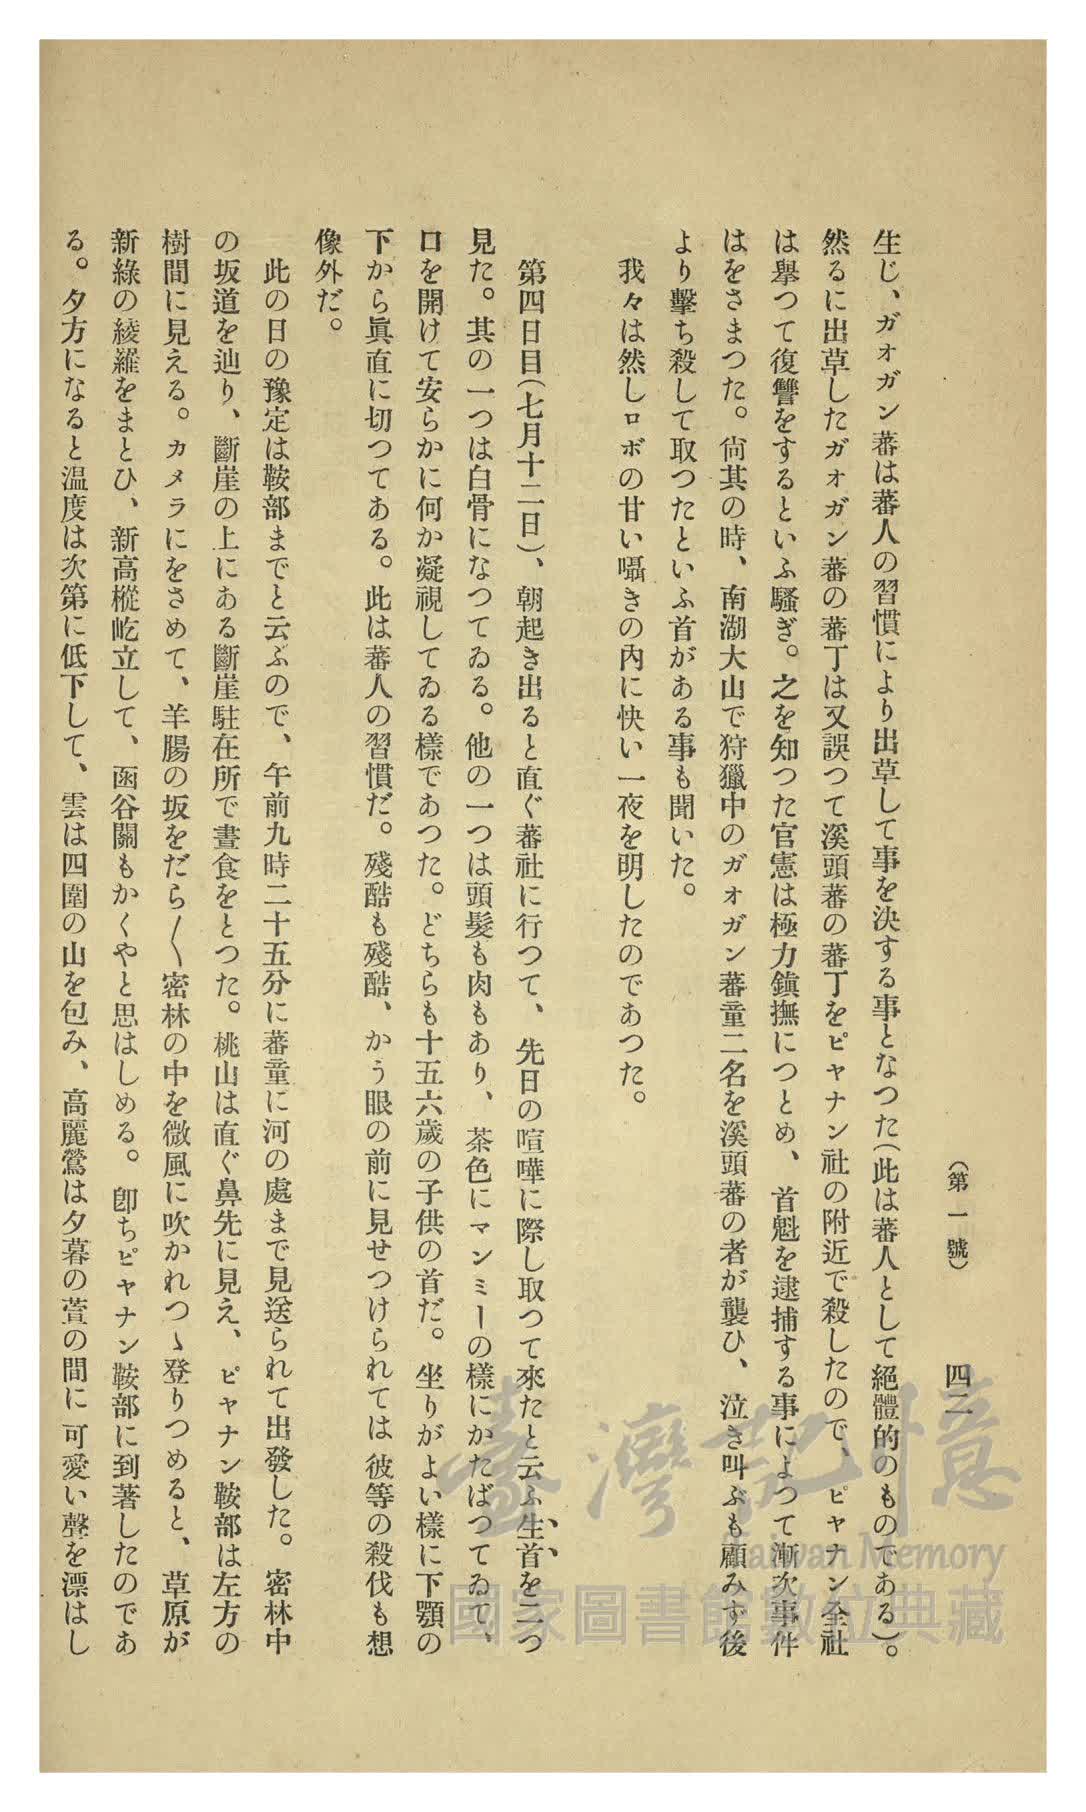 (第一號)　四二
生じ、ガオガン蕃は蕃人の習慣により出草して事を決する事となつた(此は蕃人として絕體的のものである)。
然るに出草したガオガン蕃の蕃丁は又誤つて溪頭蕃の蕃丁をピヤナン社の附近で殺したので、ピヤナン全社
は擧つて復讐をするといふ騷ぎ。之を知つた官憲は極力鎭撫につとめ、首魁を逮捕する事によつて漸次事件
はをさまつた。尙其の時、南湖大山で狩獵中のガオガン蕃童二名を溪頭蕃の者が襲ひ、泣き叫ぶも顧みず後
より擊ち殺して取つたといふ首がある事も聞いた。
我々は然しロボの甘い囁きの內に快い一夜を明したのであつた。
第四日目(七月十二日)、朝起き出ると直ぐ蕃社に行つて、先日の喧嘩に際し取つて來たと云ふ生首を二つ
見た。其の一つは白骨になつてゐる。他の一つは頭髮も肉もあり、茶色にマンミーの樣にかたばつてゐて、
口を開けて安らかに何か凝視してゐる樣であつた。どちらも十五六歲の子供の首だ。坐りがよい樣に下顎の
下から眞直に切つてある。此は蕃人の習慣だ。殘酷も殘酷、かう眼の前に見せつけられては彼等の殺伐も想
像外だ。
此の日の豫定は鞍部までと云ふので、午前九時二十五分に蕃童に河の處まで見送られて出發した。密林中
の坂道を辿り、斷崖の上にある斷崖駐在所で晝食をとつた。桃山は直ぐ鼻先に見え、ピヤナン鞍部は左方の
樹間に見える。カメラにをさめて、羊腸の坂をだら〱密林の中を微風に吹かれつゝ登りつめると、草原が
新綠の綾羅をまとひ、新高樅屹立して、函谷關もかくやと思はしめる。卽ちピヤナン鞍部に到著したのであ
る。夕方になると溫度は次第に低下して、雲は四圍の山を包み、高麗鶯は夕暮の萱の間に可愛い聲を漂はし
臺灣記憶
Taiwan Memory
國家圖書館數位典藏